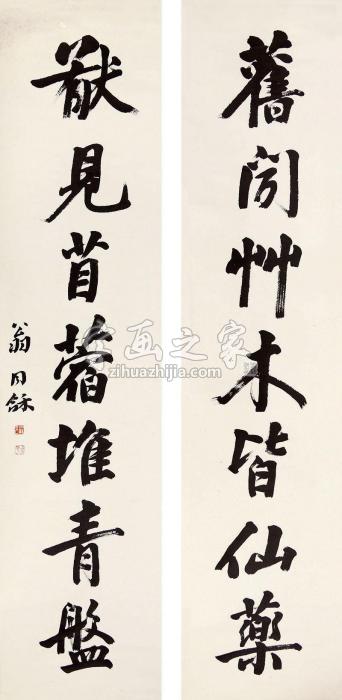 舊聞艸木皆仙藥
猒見苜蓿堆青盤
翁同龢
书画之家
zihuazhijia.com